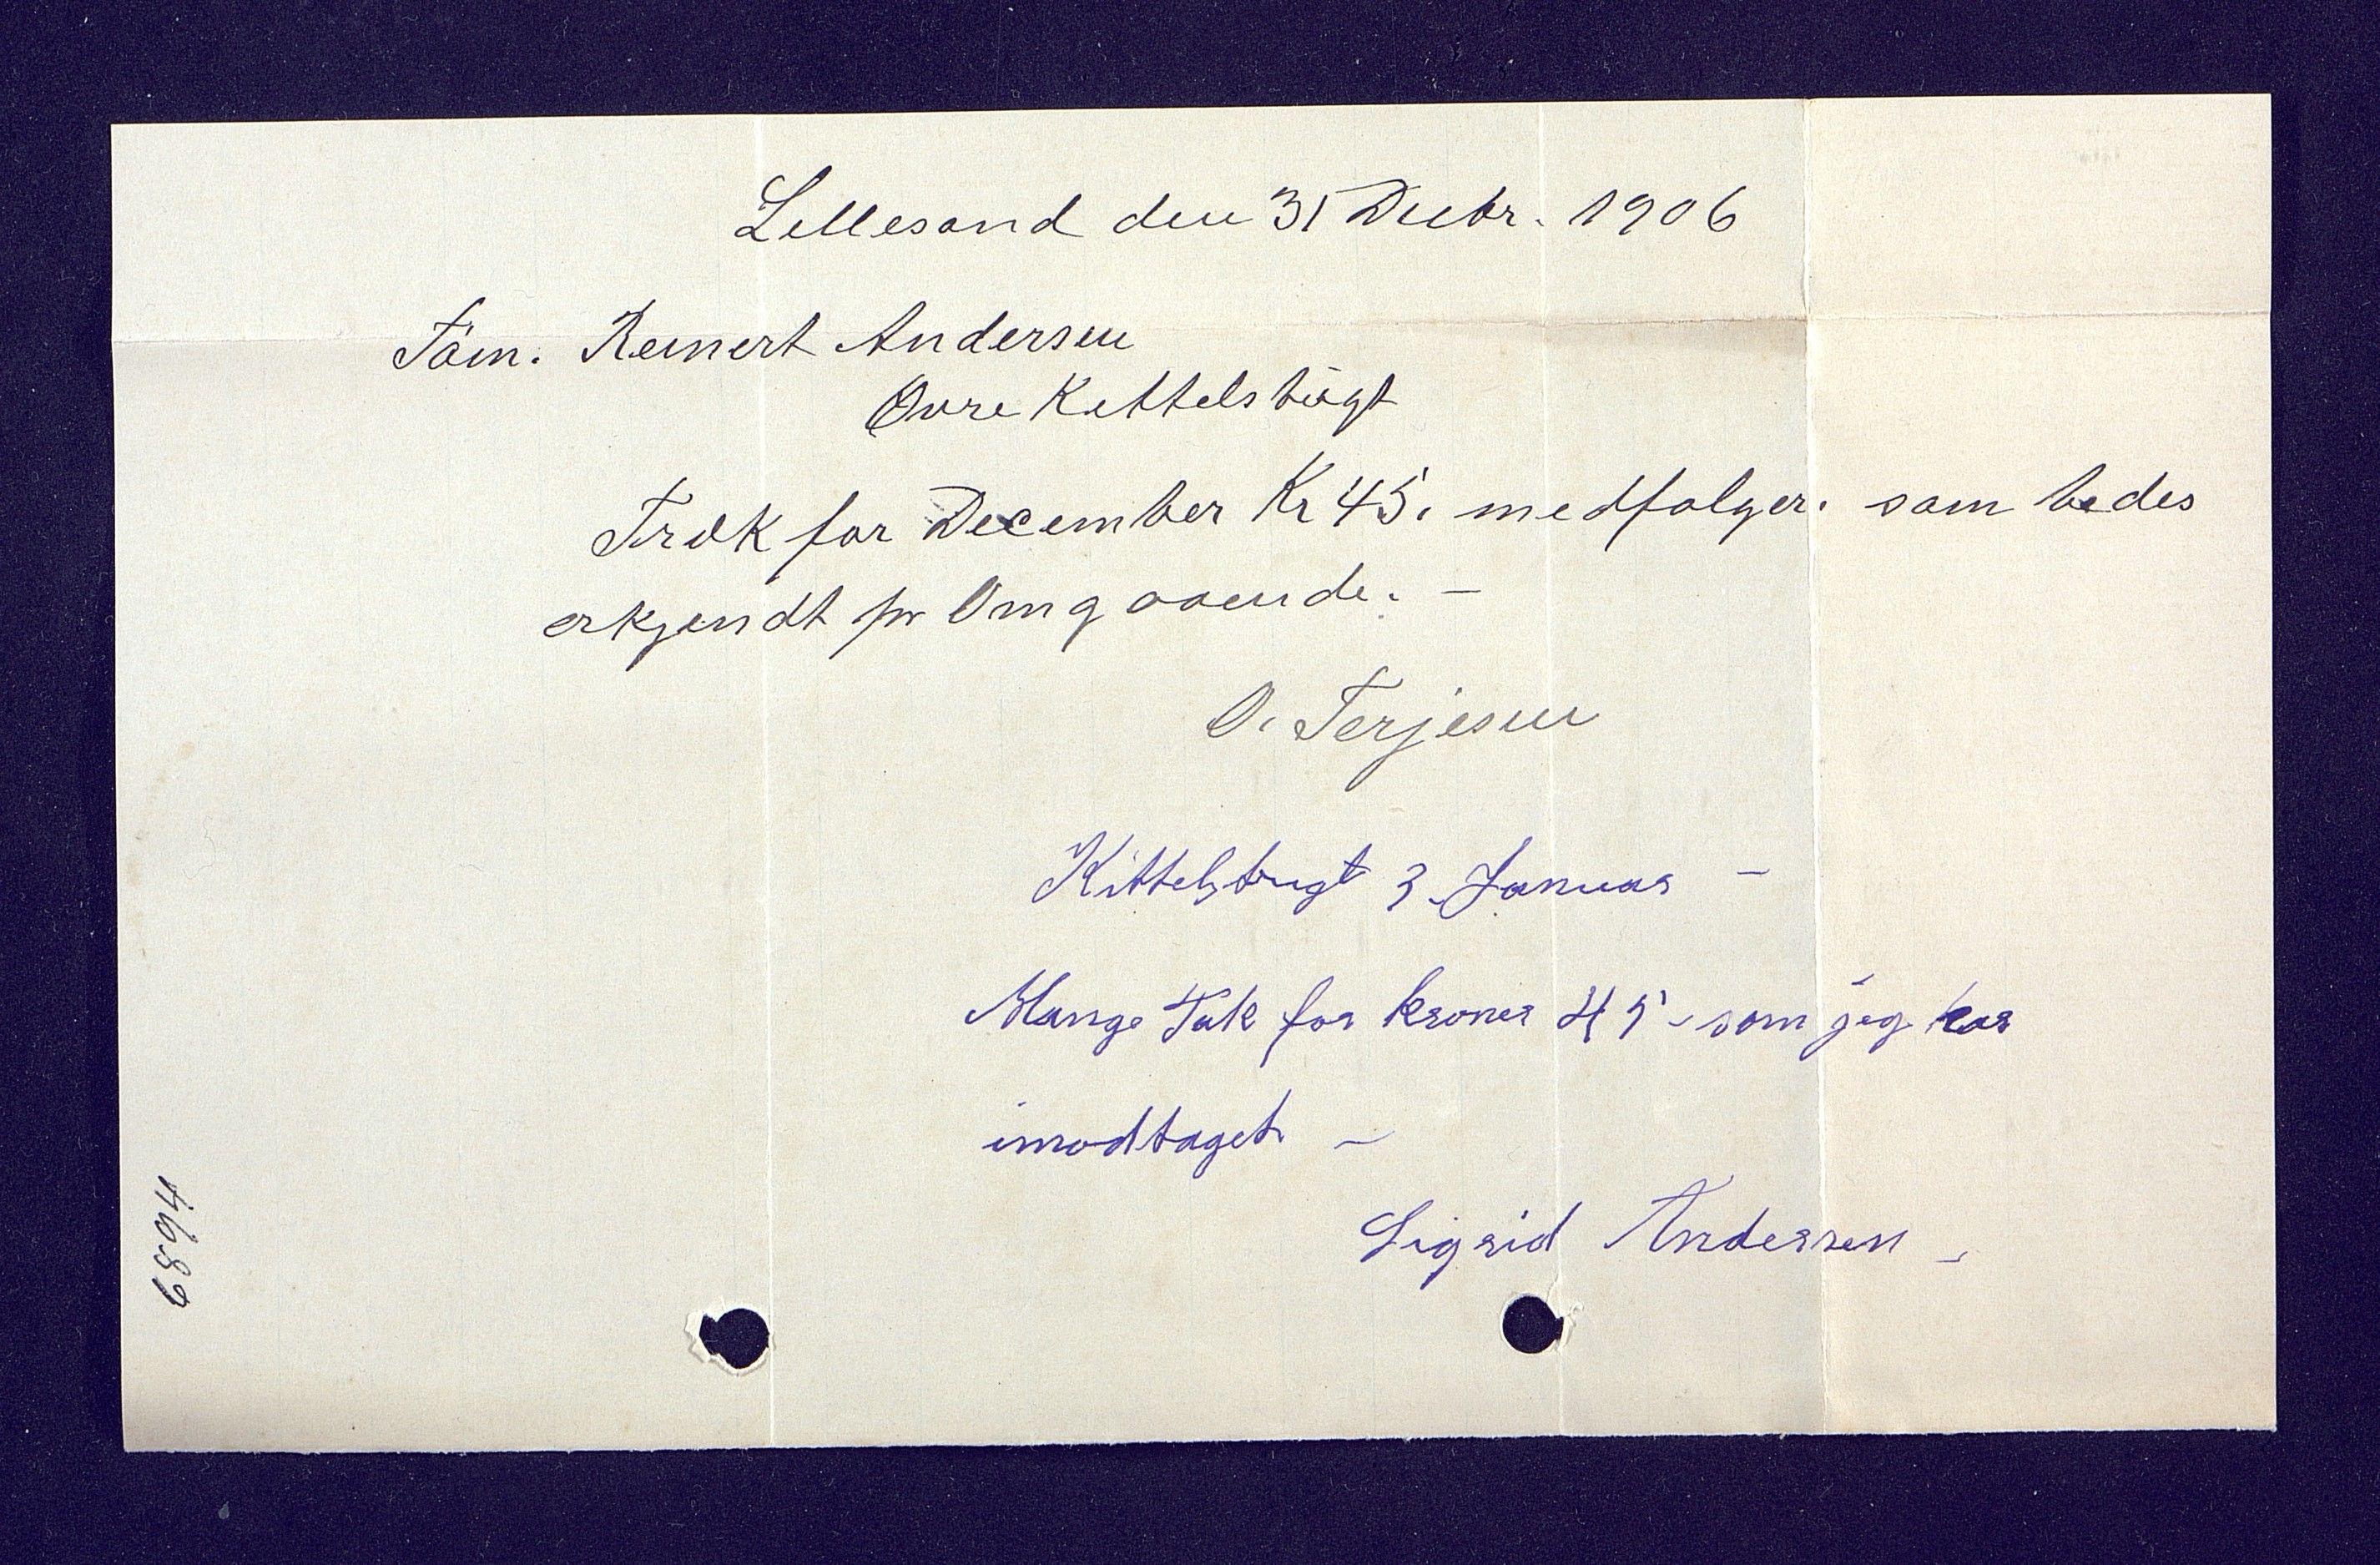 Lillesand den 31 Decbr. 1906
Töm. Reinert Andersen
Øvre Kittelsbügt
Træk for December Kr 45. medfølger. som bedes
erkjendt pr Omgaaende. –
O. Terjesen
Kittelsbugt 3 Januar –
Mange Tak for kroner 45 – som jeg har
imodtaget –
Sigrid Andersen –
14689